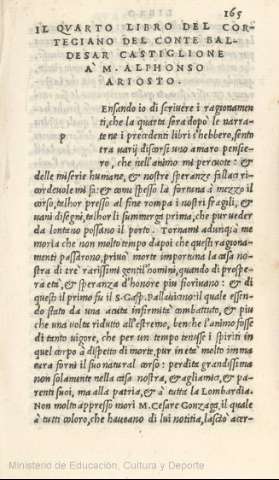 165
IL QVARTO LIBRO DEL COR-
TEGIANO DEL CONTE BAL-
DESAR CASTIGLIONE
A' M. ALPHONSO
ARIOSTO.
p
Ensando io di scriuere i ragionamen
ti, che la quarta sera dopo le narra-
te ne i precedenti libri s'hebbero, sento
tra varij discorsi uno amaro pensie-
ro, che nell'animo mi percuote: &
delle miserie humane, & nostre speranze fallaci ri-
cordeuole mi fa: & come spesso la fortuna à mezzo il
corso, tal'hor presso al fine rompa i nostri fragili, &
uani disegni, tal'hor li summerga prima, che pur ueder
da lontano possano il porto. Tornami adunque à me
moria che non molto tempo dapoi che questi ragiona-
menti passarono, priuò morte importuna la casa no-
stra di tre rarissimi gentil'homini, quando di prospe-
ra età, & speranza d'honore piu fioriuano: & di
questi il primo fu il S. Gasp. Pallauicino il quale essen-
do stato da una acuta infirmità combattuto, & piu
che una uolta ridutto all'estremo, benche l'animo fosse
di tanto uigore, che per un tempo tenesse i spiriti in
quel corpo à dispetto di morte, pur in età molto imma
tura fornì il suo natural corso: perdita grandissima
non solamente nella casa nostra, & agli amici, & pa-
renti suoi, ma alla patria, & à tutta la Lombardia.
Non molto appresso morì M. Cesare Gonzaga, il quale
à tutti coloro, che haueano di lui notitia, lasciò acer-
Ministerio de Educación, Cultura y Deporte